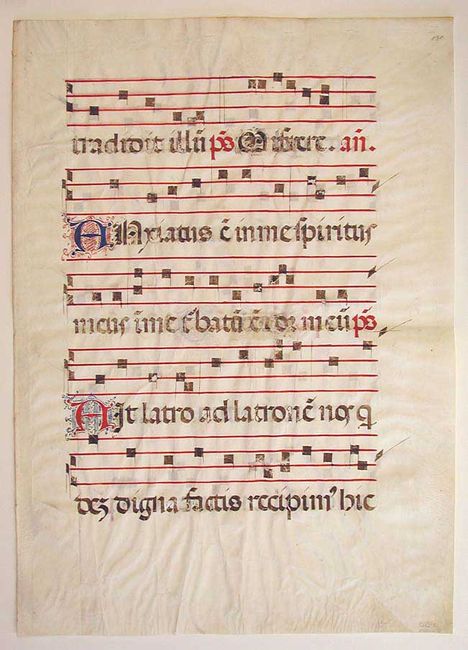 tradidit illũ p̃s Miserere. añ.
ANxiatus ẽ in me spiritus
meus ĩ me t̃batũ ẽ cor meũ p̃s
AIt latro ad latronẽ nos q̃
dez digna factis recipim⁹ hic